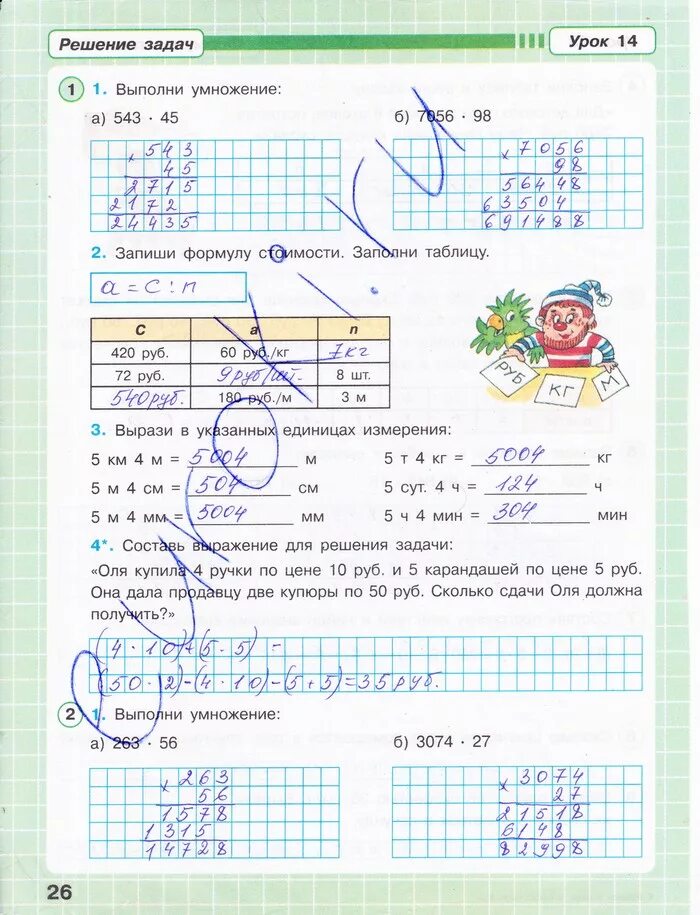 Решение задач
Урок 14
1 1. Выполни умножение:
а) 543 · 45
б) 7056 · 98
× 543
45
2715
2172
24435
× 7056
98
56448
63504
691488
2. Запиши формулу стоимости. Заполни таблицу.
a = c : n
C a n
420 руб. 60 руб./кг 7 кг
72 руб. 9 руб/шт. 8 шт.
540 руб. 180 руб./м 3 м
РУБ КГ М
3. Вырази в указанных единицах измерения:
5 км 4 м = 5004 м
5 т 4 кг = 5004 кг
5 м 4 см = 504 см
5 сут. 4 ч = 124 ч
5 м 4 мм = 5004 мм
5 ч 4 мин = 304 мин
4*. Составь выражение для решения задачи:
«Оля купила 4 ручки по цене 10 руб. и 5 карандашей по цене 5 руб.
Она дала продавцу две купюры по 50 руб. Сколько сдачи Оля должна
получить?»
(4 · 10) + (5 · 5) =
(50 · 2) - (4 · 10) - (5 + 5) = 35 руб.
2 1. Выполни умножение:
а) 263 · 56
б) 3074 · 27
× 263
56
1578
1315
14728
× 3074
27
21518
6148
82998
26